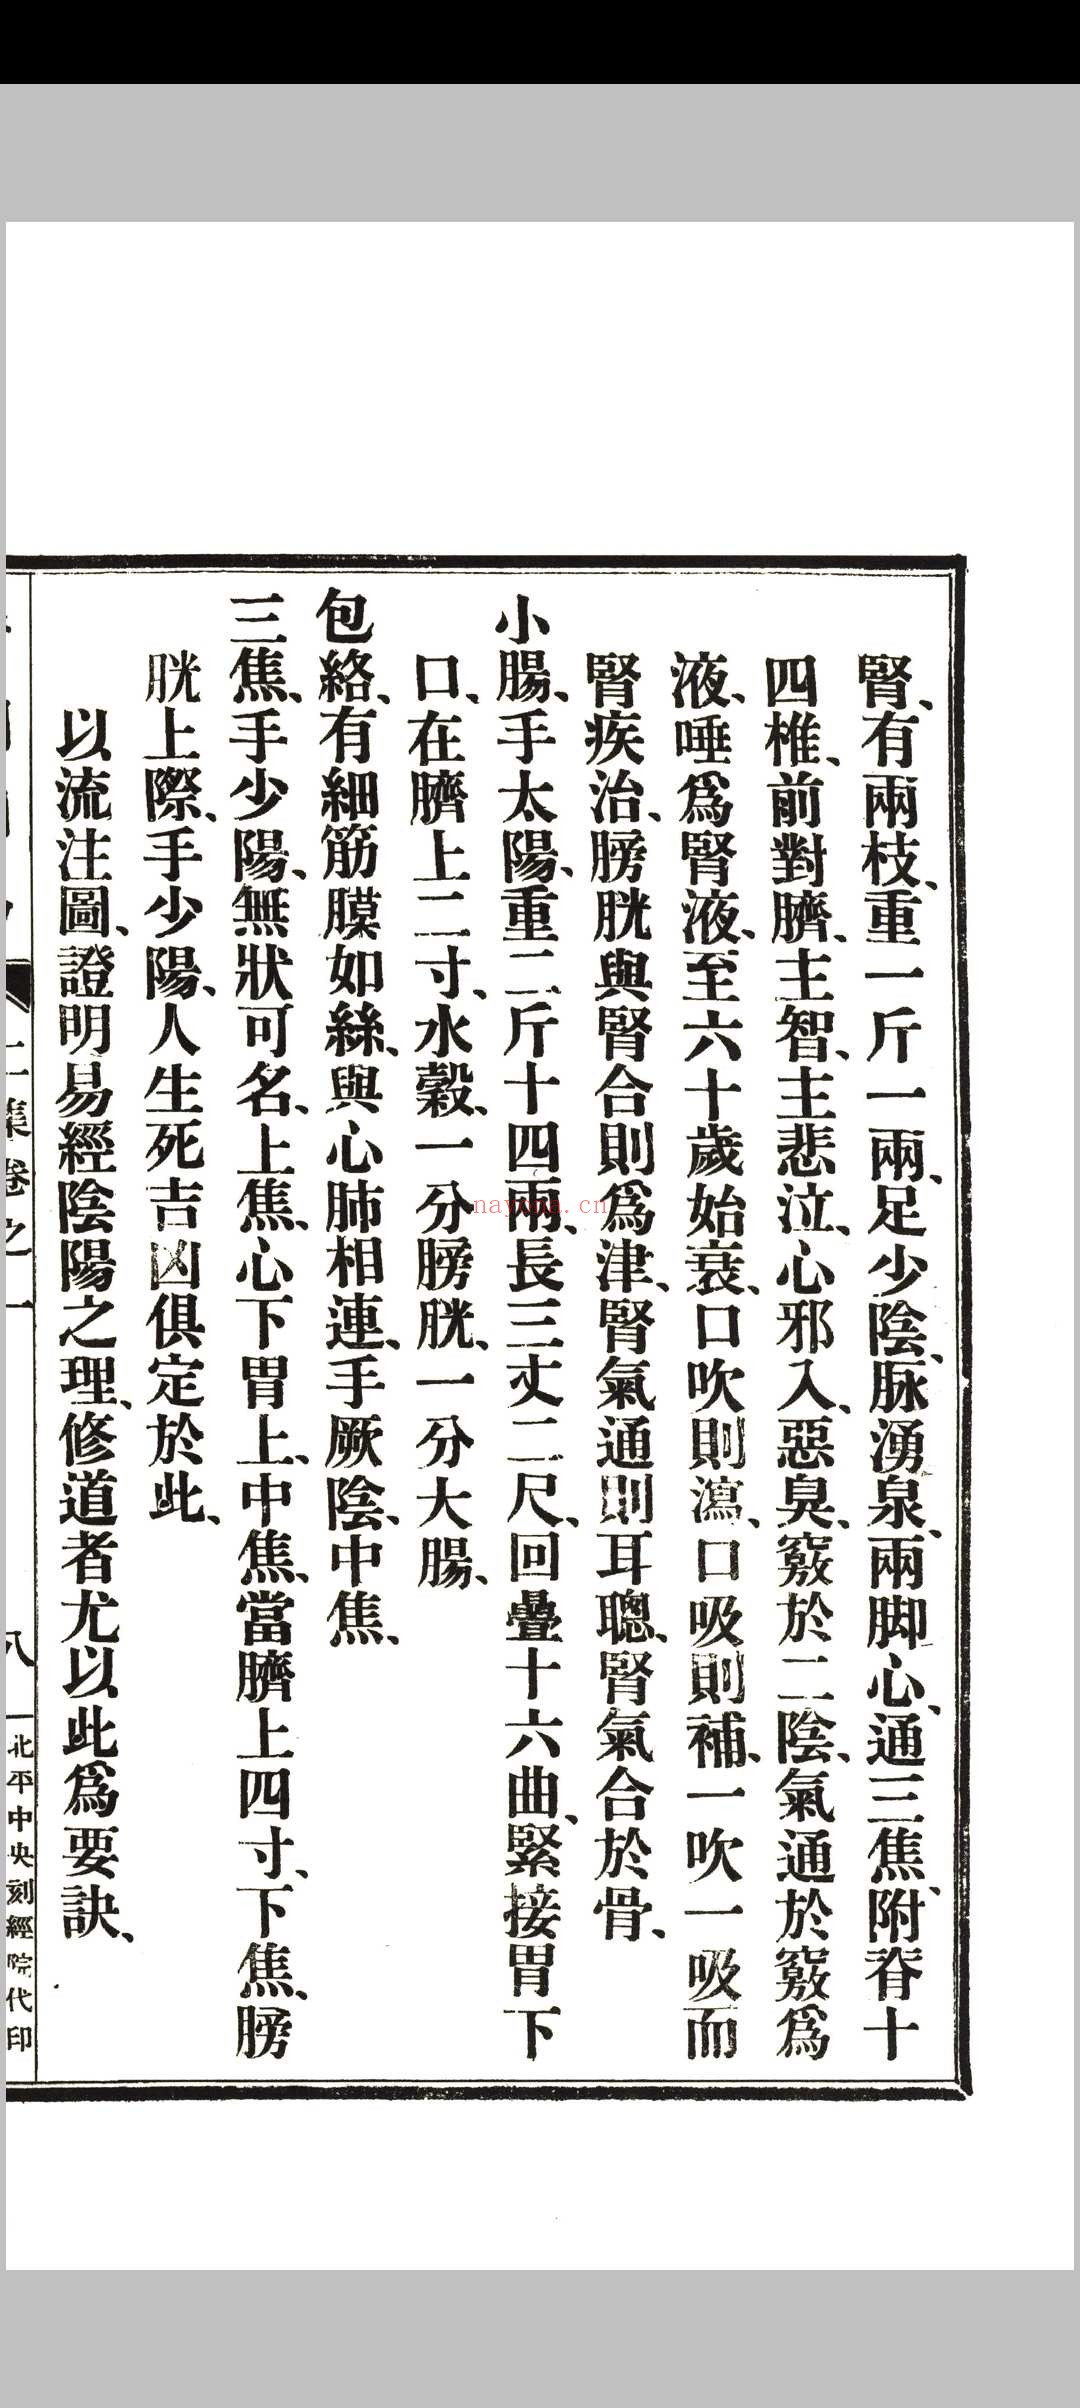 腎、有兩枝、重一斤一兩、足少陰、脉湧泉、兩脚心、通三焦、附脊十
四椎、前對臍、主智、主悲泣、心邪入、惡臭、竅於二陰、氣通於竅爲
液、唾爲腎液、至六十歲始衰、口吹則瀉、口吸則補、一吹一吸而
腎疾治、膀胱與腎合則爲津、腎氣通則耳聰、腎氣合於骨、
小腸、手太陽、重二斤十四兩、長三丈二尺、回疊十六曲、緊接胃下
口、在臍上二寸、水穀、一分膀胱、一分大腸、
包絡、有細筋膜如絲、與心肺相連、手厥陰、中焦、
三焦、手少陽、無狀可名、上焦、心下胃上、中焦、當臍上四寸、下焦、膀
胱上際、手少陽、人生死吉凶俱定於此、
以流注圖、證明易經陰陽之理、修道者尤以此爲要訣、
二集卷之一
八
北平中央刻經院代印
nayona.cn